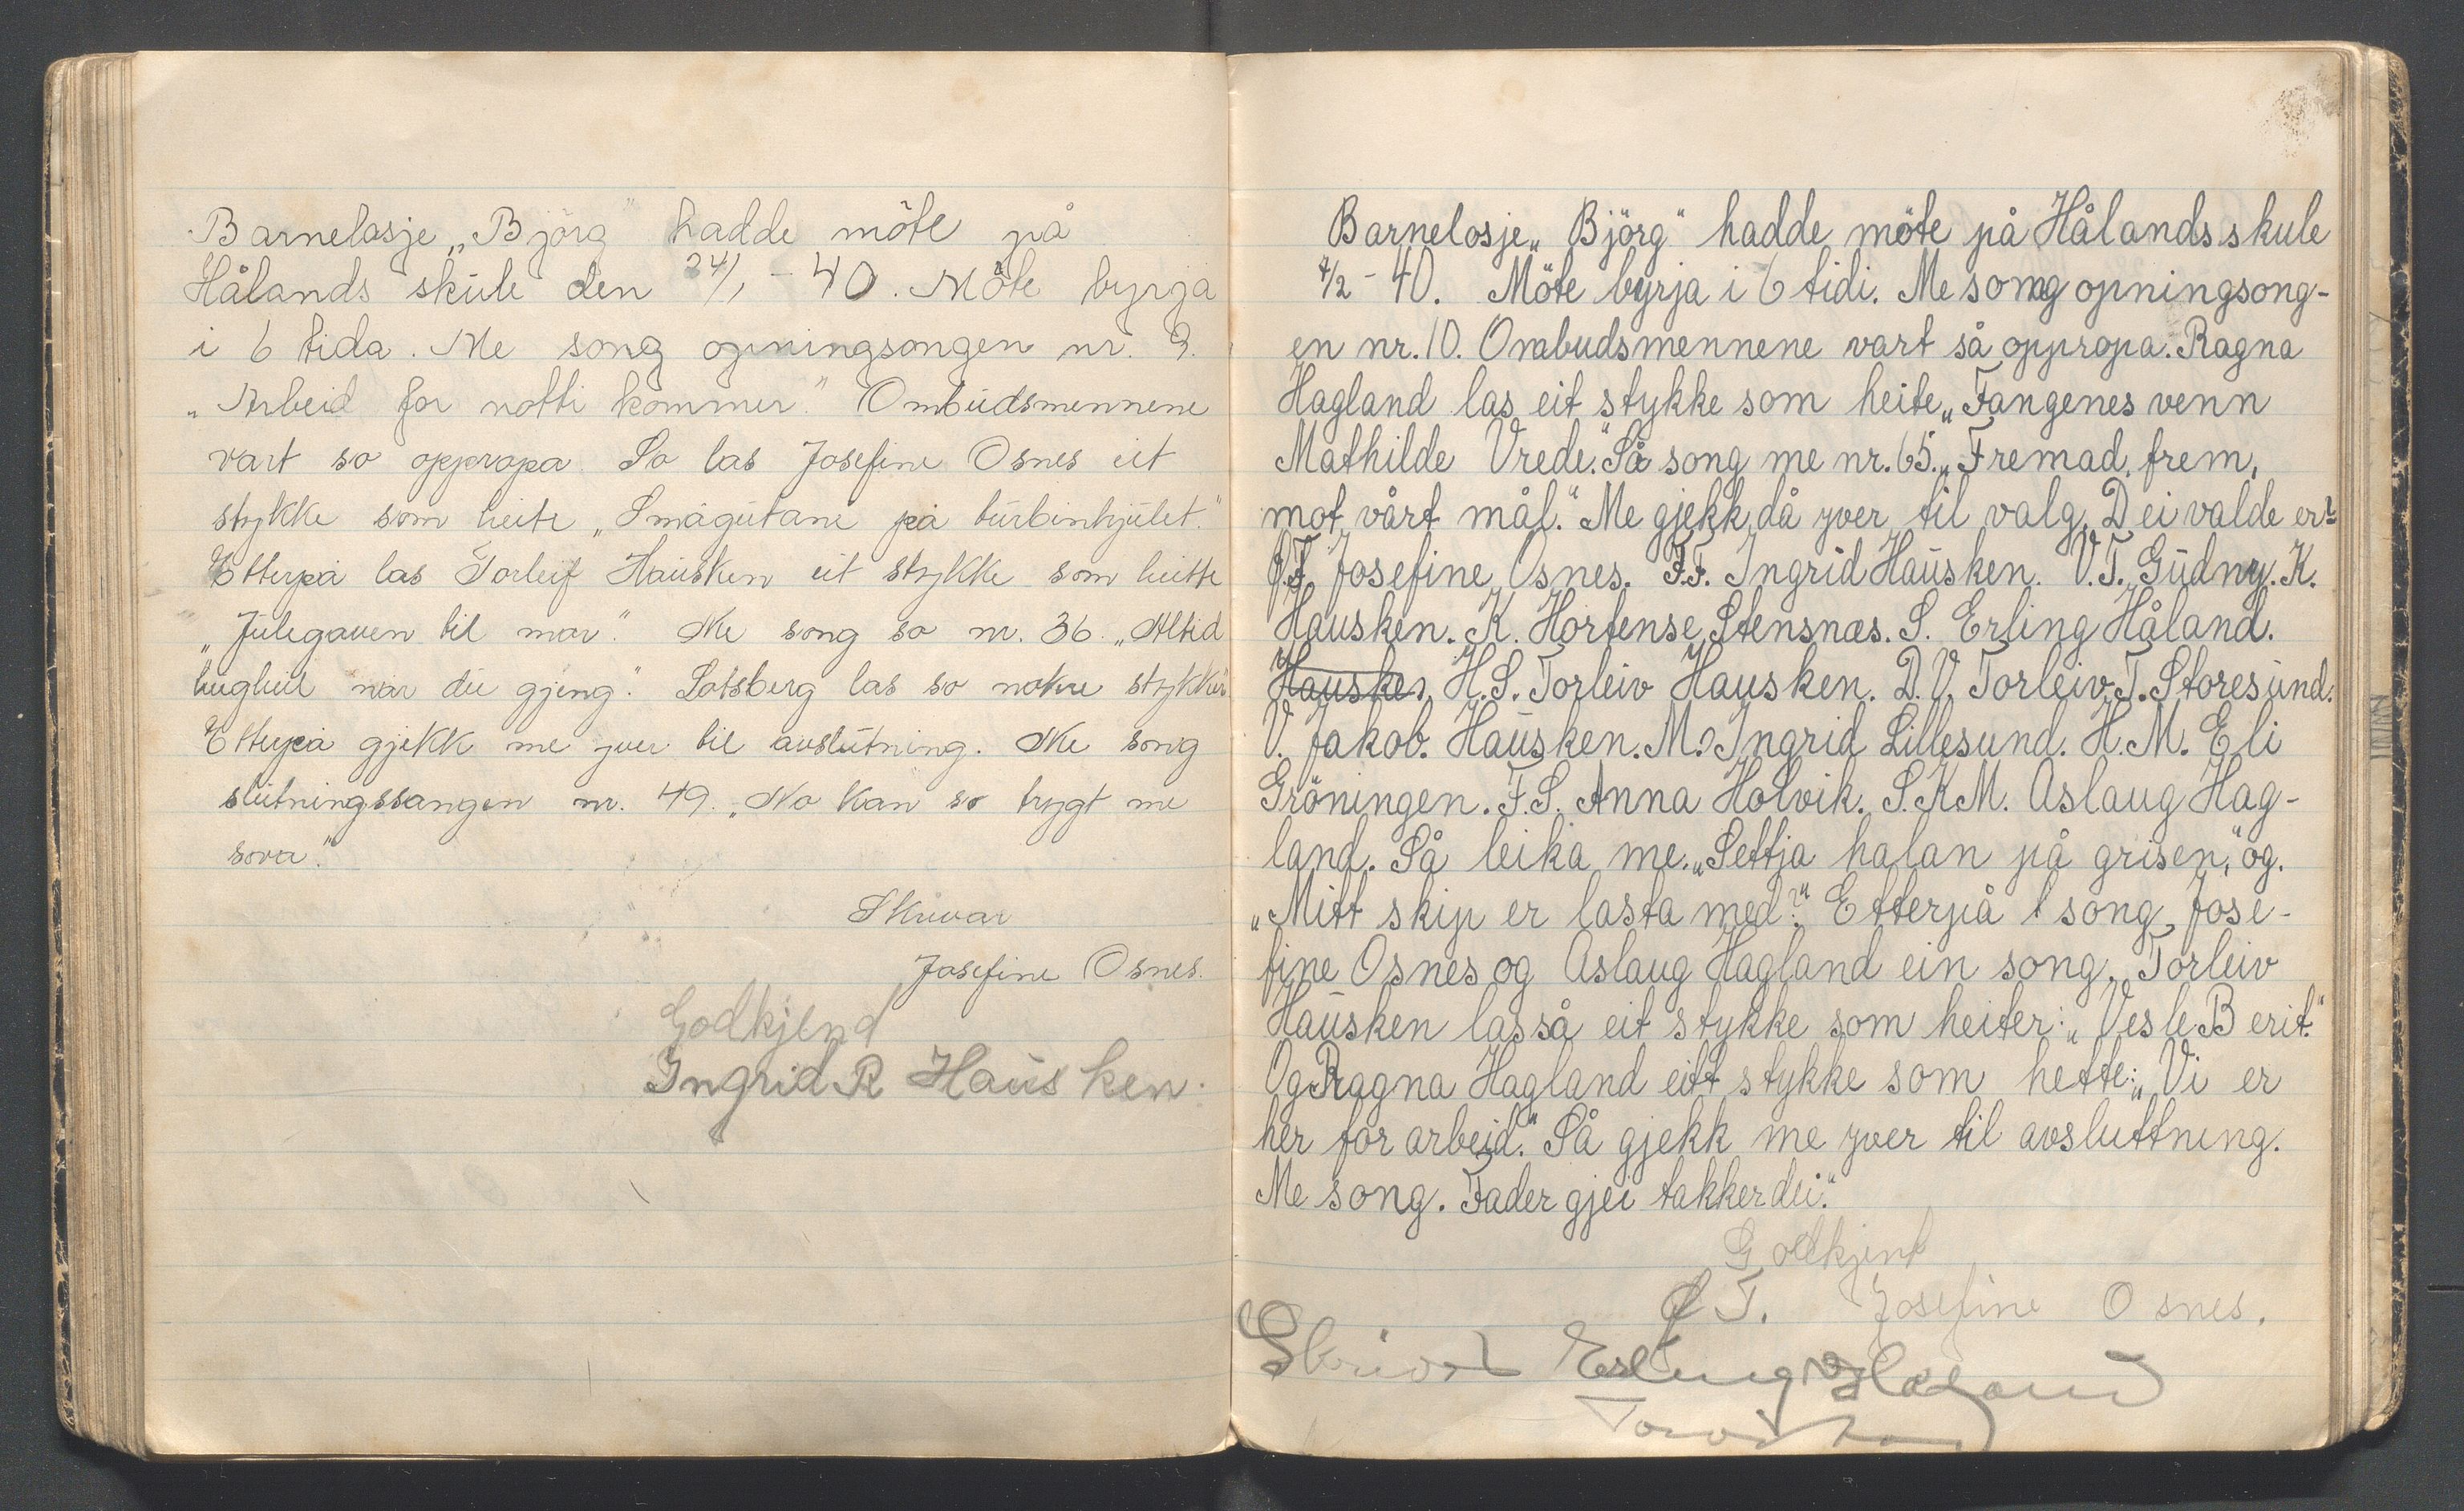 Barnelosje „Björg" hadde möte på
Hålands skule den 24/1 - 40. Möte byrja
i 6 tida. Me song opningsongen nr. 9.
„Arbeid for notti kommer." Ombudsmennene
vart so oppropa. So las Josefine Osnes eit
stykke som heite „Smågutane på turbinhjulet."
Etterpå las Torleif Hausken eit stykke som heitte
„Julegaven til mor". Me song so nr. 36. „Altid
hugheil når du gjeng". Sotsberg las so nokre stykker
Etterpå gjekk me yver til avslutning. Me song
slutningssangen nr. 49. „No kan so trygt me
sova."
Skrivar
Josefine Osnes.
Godkjend
Ingrid R Hausken.
Barnelosje „Björg" hadde möte på Hålands skule
4/2 - 40. Möte byrja i 6 tidi. Me song opningsong-
en nr. 10. Ombudsmennene vart så oppropa. Ragna
Hagland las eit stykke som heite „Fangenes venn
Mathilde Vrede." Så song me nr. 65. „Fremad, frem,
mot vårt mål." Me gjekk då yver til valg. Dei valde er:
Ø.T. Josefine Osnes. F.T. Ingrid Hausken. V.T. Gudny. K.
Hausken. K. Hortense Stensnæs. S. Erling Håland.
Hausken H.S. Torleiv Hausken. D.V. Torleiv. T. Storesund.
V. Jakob. Hausken. M. Ingrid Lillesund. H.M. Eli
Gröningen. F.S. Anna Holvik. S.K.M. Aslaug Hag-
land. Så leika me. „Settja halan på grisen," og.
„Mitt skip er lasta med?" Etterpå song Jose-
fine Osnes og Aslaug Hagland ein song. Torleiv
Hausken las så eit stykke som heiter: „Vesle Berit."
Og Ragna Hagland eitt stykke som hette: „Vi er
her for arbeid." Så gjekk me yver til avsluttning.
Me song. Fader gjei takker dei."
Godkjent
Ø T. Josefine Osnes.
Skrivar Erling Håland